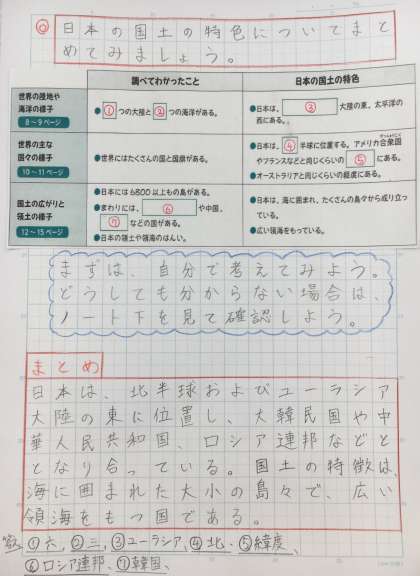 ◎ 日本の国土の特色についてまと
めてみましょう。
調べてわかったこと 日本の国土の特色
世界の陸地や
海洋の様子
8～9ページ
●①つの大陸と②つの海洋がある。
●日本は、③大陸の東、太平洋の
西にある。
世界の主な
国々の様子
10～11ページ
●世界にはたくさんの国と国旗がある。
●日本は、④半球に位置する。アメリカ合衆国
やフランスなどと同じくらいの⑤にある。
●オーストラリアと同じくらいの経度にある。
国土の広がりと
領土の様子
12～15ページ
●日本には6800以上もの島がある。
●まわりには、⑥や中国、
⑦などの国がある。
●日本の領土や領海のはんい。
●日本は、海に囲まれ、たくさんの島々から成り立っ
ている。
●広い領海をもっている。
まずは、自分で考えてみよう。
どうしても分からない場合は、
ノート下を見て確認しよう。
まとめ
日本は、北半球およびユーラシア
大陸の東に位置し、大韓民国や中
華人民共和国、ロシア連邦などと
となり合っている。国土の特徴は、
海に囲まれた大小の島々で、広い
領海をもつ国である。
①六、②三、③ユーラシア、④北、⑤緯度、
⑥ロシア連邦、⑦韓国、